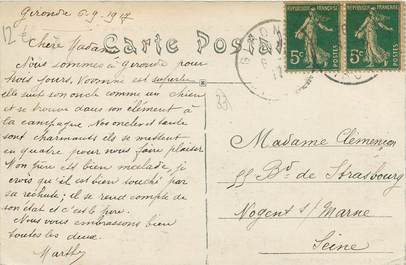 Gironde 6-9-1917
12€
Chère Madame
Carte Postale
Nous sommes à Gironde pour
trois jours, Yvonne est superbe
elle suit son oncle comme un chien
et se trouve dans son élément à
la campagne. Nos oncle et tante
sont charmants ils se mettent
en quatre pour nous faire plaisir
Mon père est bien malade, je
crois qu'il est bien touché par
sa rechute; il se rend compte de
son état et c'est le pire.
Nous vous embrassons bien
toutes les deux.
Marthe
33
REPUBLIQUE FRANÇAISE
5c
POSTES
REPUBLIQUE FRANÇAISE
5c
POSTES
Madame Clémençon
55 Bd de Strasbourg
Nogent s/ Marne
Seine